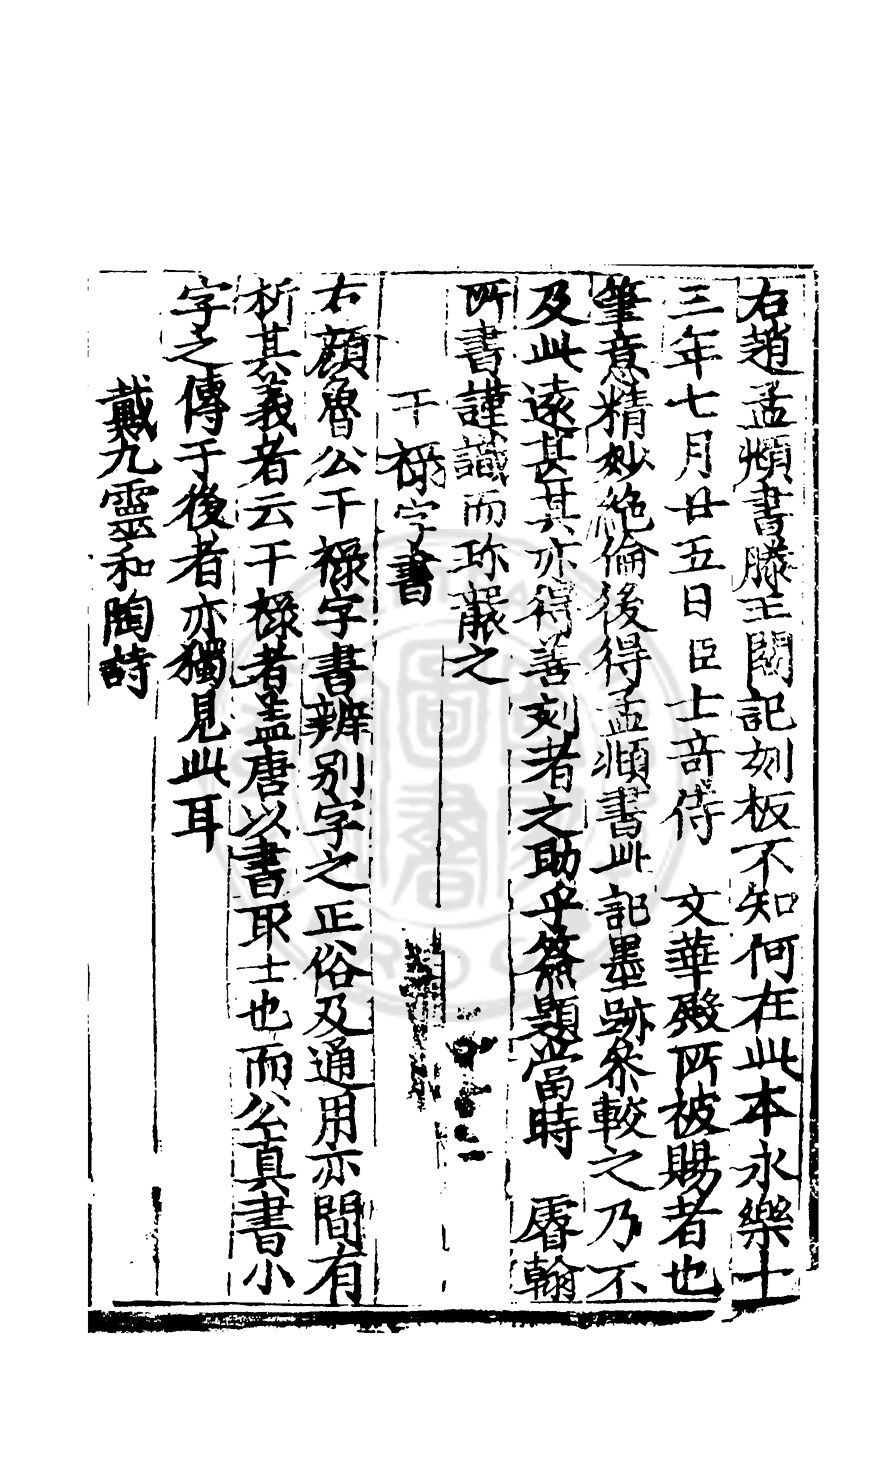 右趙孟頫書滕王閣記刻板不知何在此本永樂十
三年七月廿五日臣士奇侍 文華殿所被賜者也
筆意精妙絶倫後得孟頫書此記墨跡叅較之乃不
及此遠甚其亦得善刻者之助乎篇題當時 睿翰
所書謹識而珎藏之
干禄字書
右顔魯公干禄字書辨别字之正俗及通用亦間有
析其義者云干禄者盖唐以書取士也而公真書小
字之傳于後者亦獨見此耳
戴九靈和陶詩